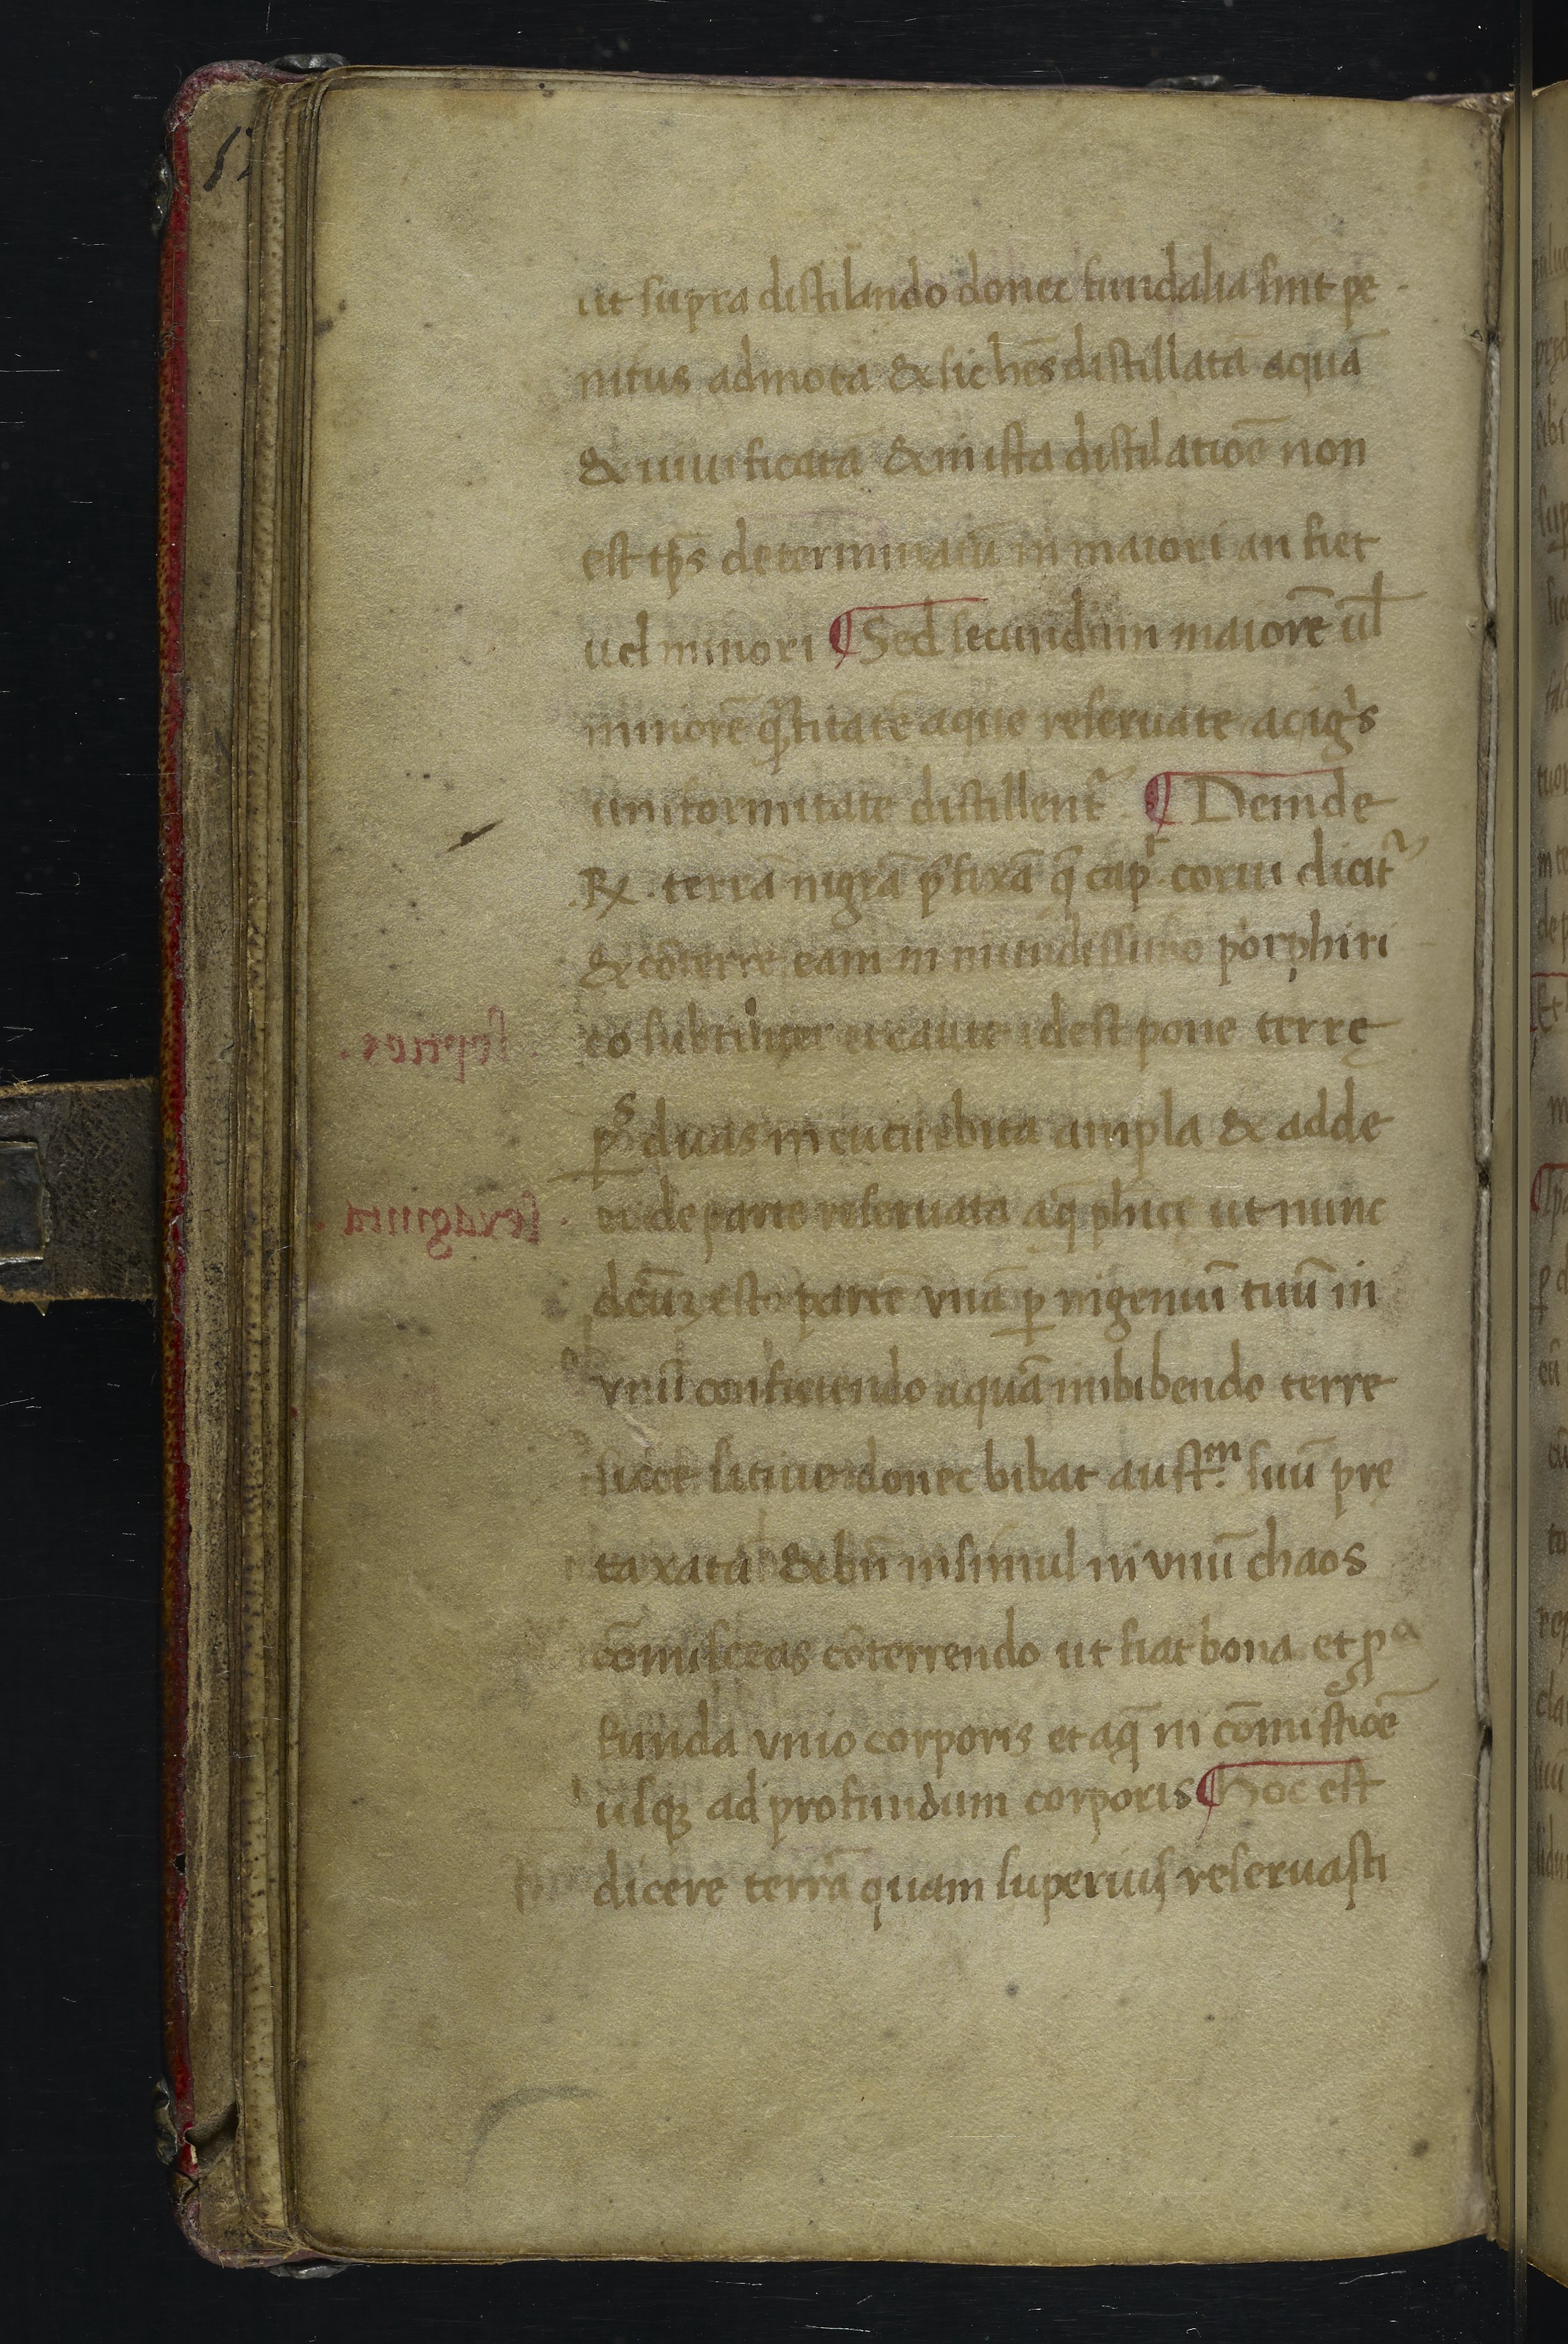 ut supra distilando donec fundalia sint pe
nitus admota & sic hēs distillatā aquā
& uiuificatā & in ista distilatiōe non
est tp̄s determinatū in maiori an fiet
uel minori ¶ Sed secundum maiorē ul̄
minorē qͣtitatē aque reseruate ac igͥs
uniformitate distillent᷑ ¶ Deinde
℞. terrā nigrā p̄fixā q̄ capͭ corui dicit᷑
& cōterre eam in mundissimo porphiri
co subtilit᷑ et caute idest pone terrę
ꝑͭˢ duas in cucurbita ampla & adde
ei de parte reseruata aq̄ phicę ut nunc
dcūꝫ est partē vnā ꝑ ingeniū tuū in
vnū conficiendo aquā imbibendo terre
sicce sitiue donec bibat austͫ suū prę
taxatā & bn̄ insimul in vnū chaos
cōmisceas cōterrendo ut fiat bona et ꝓ
funda vnio corporis et aq̄ in cōmistiōe
usqꝫ ad profundum corporis ¶ Hoc est
dicere terrā quam superius reseruasti